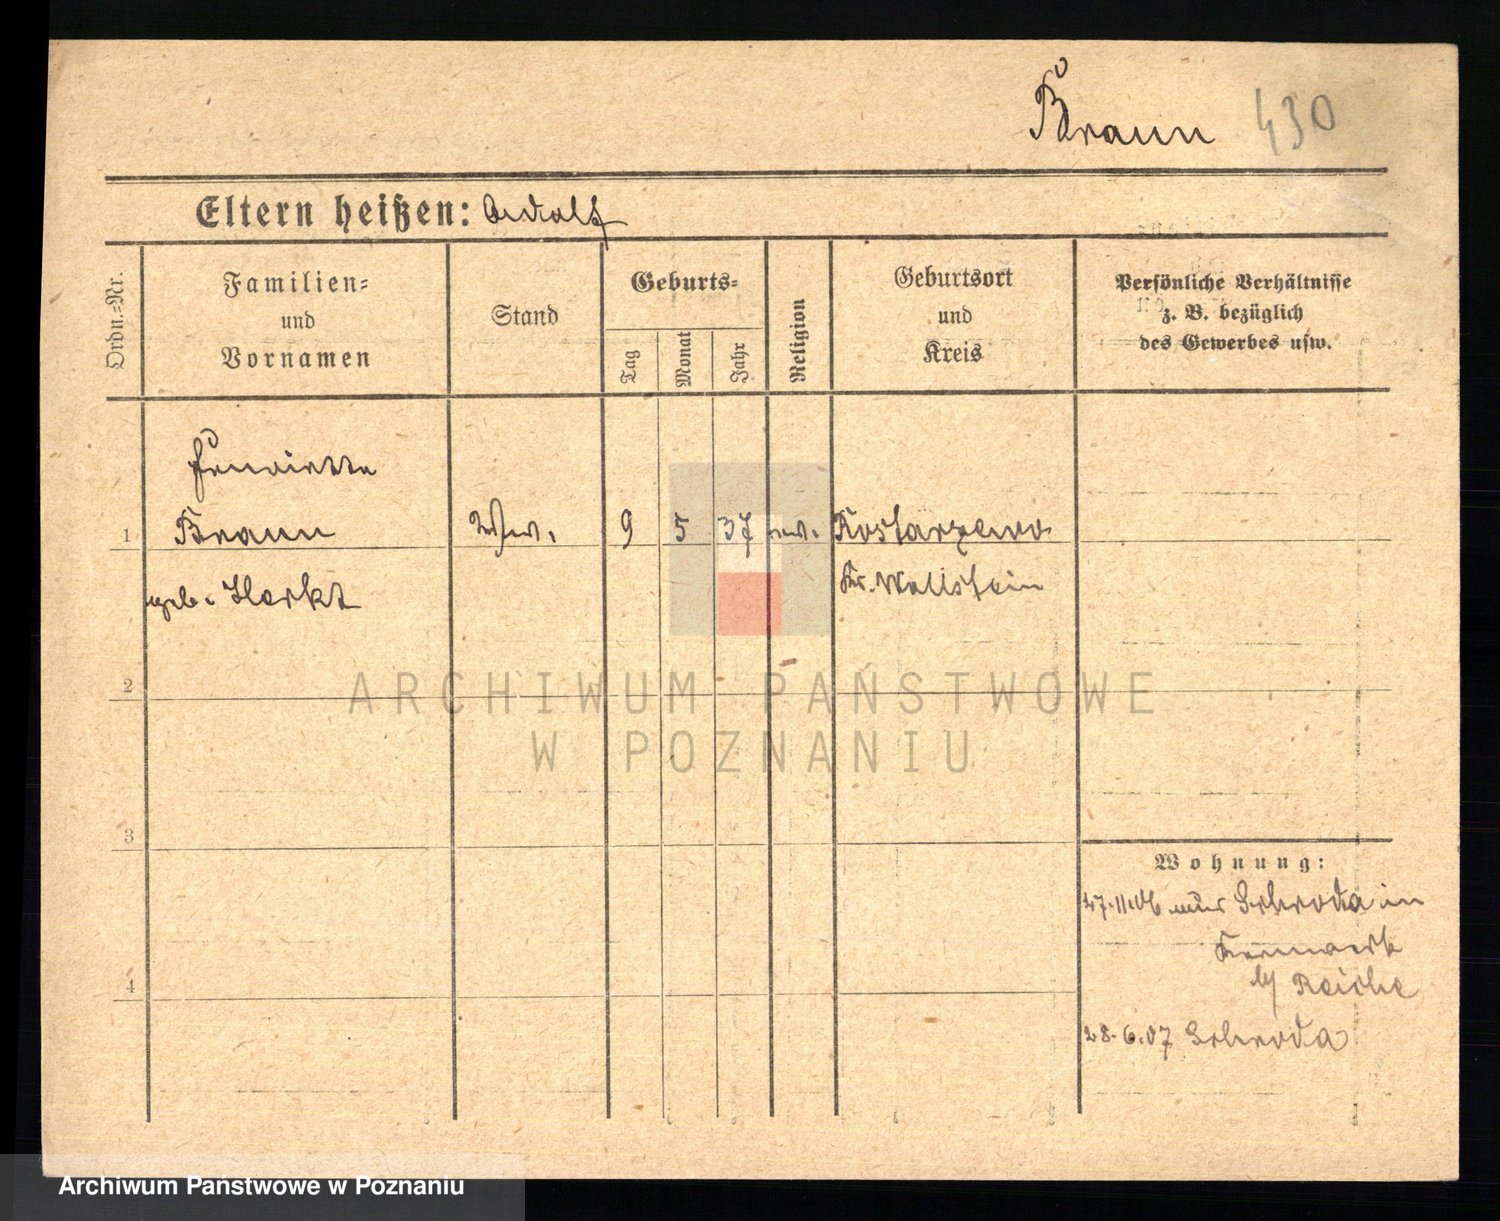 Braun 430
Eltern heißen: Adolf
Ordn.-Nr.
Familien-
und
Vornamen
Stand
Geburts-
Tag
Monat
Jahr
Religion
Geburtsort
und
Kreis
Persönliche Verhältnisse
z. B. bezüglich
des Gewerbes usw.
Henriette
1 Braun Ww. 9 5 37 ev. Kostarzewo
geb. Kr. Wollstein
2
3
4
Wohnung:
27.11.06 aus Schroda in
Kernwerk
by Reiche
28.6.07 Schroda
ARCHIWUM PAŃSTWOWE
W POZNANIU
Archiwum Państwowe w Poznaniu